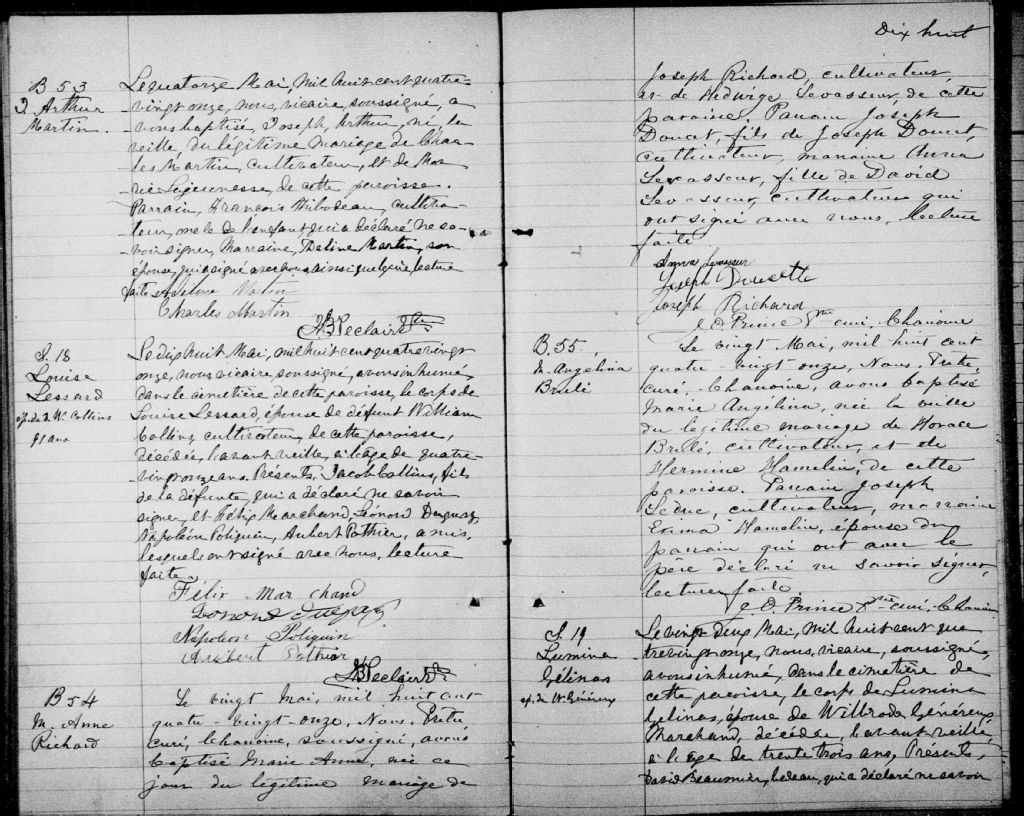 B 53
J. Arthur
Martin.
Le quatorze Mai, mil huit cent quatre-
-vingt onze, nous, vicaire, soussigné, a
-vons baptisé, Joseph, Arthur, né, la
veille du légitime mariage de Char-
-les Martin, cultivateur, et de Ma-
-rie Lejeunesse, de cette paroisse.
Parrain, François Thibodeau, cultiva-
-teur, oncle de l'enfant qui a déclaré ne sa-
-voir signer, Marraine, Zseline Martin, son
épouse, qui a signé avec nous ainsi que le père lecture
faite. Martin
Charles Martin
JB Leclair Ptre
S. 18
Louise
Lessard
ep. de d. W. Collins
91 ans
Le dix huit Mai, mil huit cent quatre vingt
onze, nous vicaire soussigné, avons inhumé,
dans le cimetière de cette paroisse, le corps de
Louise Lessard, épouse de défunt William
Collins cultivateur, de cette paroisse,
décédée, l'avant veille, à l'âge de quatre-
vingt onze ans. Présents, Jacob Collins, fils
de la défunte, qui a déclaré ne savoir
signer, et Félix Marchand, Léonord Duguay,
Napoléon Poliquin, Aubert Pothier, amis,
lesquels ont signé avec nous, lecture
faite.
Félix Marchand
Napoléon Poliquin
Pothier
JB Leclair Ptre
B 54
M. Anne
Richard
Le vingt Mai, mil huit cent
quatre-vingt-onze, Nous, Prêtre
curé, chanoine, soussigné, avons
baptisé Marie Anne, née ce
jour du légitime mariage de
Dix huit
Joseph Richard, cultivateur,
et de Hedwige Levasseur, de cette
paroisse. Parrain Joseph
Doucet, fils de Joseph Doucet,
cultivateur, marraine Anna
Levasseur, fille de David
Levasseur, cultivateur qui
ont signé avec nous, lecture
faite
Anna Levasseur
Joseph Doucette
Joseph Richard
J. O. Prince Ptre curé, Chanoine
B. 55.
M. Angelina
Brulé
Le vingt Mai, mil huit cent
quatre-vingt onze, Nous, Prêtre,
curé, Chanoine, avons baptisé
Marie Angélina, née la veille
du légitime mariage de Horace
Brulé, cultivateur, et de
Hermine Hamelin, de cette
paroisse. Parrain Joseph
Leduc, cultivateur, marraine
Exima Hamelin, épouse du
parrain qui ont avec le
père déclaré ne savoir signer,
lecture faite.
J. O. Prince Ptre curé, Chanoine
S. 19
Lumina
Gélinas
ep. de W. Généreux
Le vingt deux Mai, mil huit cent qua
tre vingt onze, nous, vicaire, soussigné,
avons inhumé, dans le cimetière de
cette paroisse, le corps de Lumina
Gelinas, épouse de Wilbrode Généreux
Marchand, décédée, l'avant veille,
à l'âge de trente trois ans, Présents,
David Beaumier, bedeau, qui a déclaré ne savoir